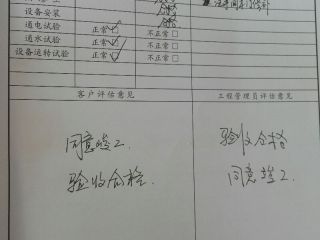 设备安装
通电试验 正常☑ 不正常☐
通水试验 正常☑ 不正常☐
设备运转试验 正常☑ 不正常☐
客户评估意见 工程管理员评估意见
同意竣工 验收合格
验收合格 同意竣工